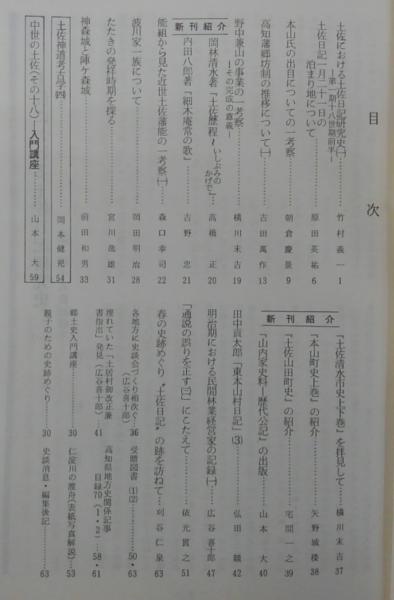 目次
土佐における土佐日記研究史(一)……竹村義一 1
―第一期十八世期前半―
土佐日記一月二十一日の泊まり地について……原田英祐 6
本山氏の出目についての一考察……朝倉慶景 9
高知藩郷坊制の推移について(一)……吉田萬作 13
野中兼山の事業の一考察……横川末吉 19
―その完成の意義―
新刊紹介
岡林清水著「土佐歴程~いしぶみのかげで」……高橋正 20
内田八郎著「細木庵常の歌」……吉野忠 21
能組から見た近世土佐藩能の一考察(一)……森口幸司 22
波川家一族について……岡田明治 28
たたきの発祥時期を探る……宮川逸雄 31
神森城と陣ケ森城……前田和男 33
土佐神道考古学(四)……岡本健児 54
中世の土佐(その十八)―入門講座……山本大 59
新刊紹介
『土佐清水市史上下巻』を拝見して……横川末吉 37
『本山町史上巻』の紹介……矢野城楼 38
『土佐山田町史』の紹介……宅間一之 39
『山内家史料・歴代公記』の出版……山本大 40
田中貢太郎「東本山村日記」(3)……弘田競 42
明治期における民間林業経営家の記録(一)……広谷喜十郎 47
「通説の誤りを正す(三)」にこたえて……依光貫之 51
春の史跡めぐり"土佐日記"の跡を訪ねて……刈谷仁泉 63
各地方に史談会づくり相次ぐ…36
(広谷喜十郎)
埋れていた「土居村御改正兼書指出」発見(広谷喜十郎)…41
郷土史入門講座……30
親子のための史跡めぐり……30
受贈図書(1)(2)……50・63
高知県地方史関係記事目録70(1・2)……58・61
仁淀川の渡舟(表紙写真解説)…53
史談消息・編集後記……63